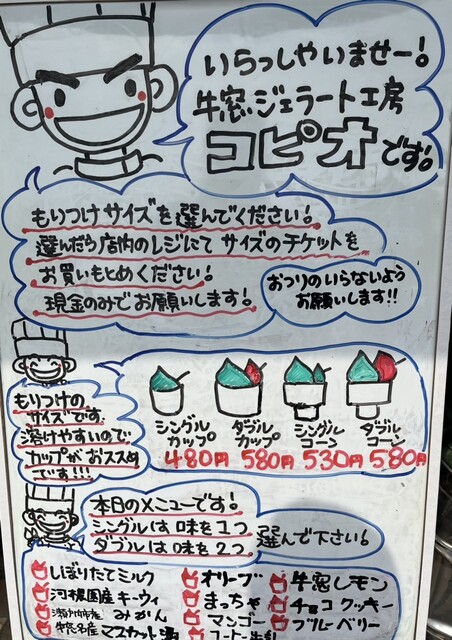 いらっしゃいませー!
牛窓ジェラート工房
コピオです。
もりつけサイズを選んでください!
選んだら店内のレジにて サイズのチケットを
お買いもとめください!
現金のみでお願いします!
おつりのいらないよう
お願いします!!
もりつけの
サイズです
溶けやすいので
カップがおススめ
です!!!
シングル
カップ
480円
ダブル
カップ
580円
シングル
コーン
530円
ダブル
コーン
580円
本日のメニューです!
シングルは味を1つ
ダブルは味を2つ
選んで下さい!
しぼりたてミルク
河本農園産キーウィ
瀬戸内市産 みかん
牛窓名産 マスカット酒
オリーブ
まっちゃ
マンゴー
コーヒー牛乳
牛窓レモン
チョコクッキー
ブルーベリー